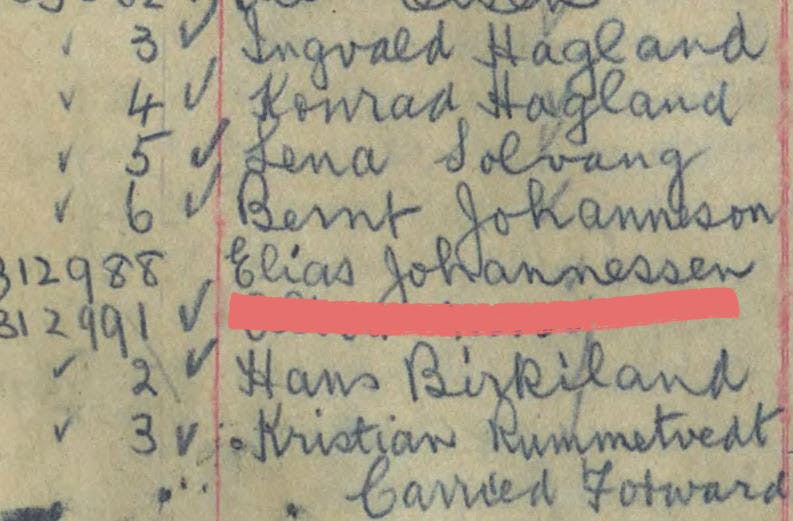 ✓ 3 ✓ Ingvald Hagland
✓ 4 ✓ Konrad Hagland
✓ 5 ✓ Lena Solvang
✓ 6 ✓ Bernt Johanneson
312988 Elias Johannessen
312991 ✓
✓ 2 ✓ Hans Birkiland
✓ 3 ✓ Kristian Rummetvedt
Carried Forward